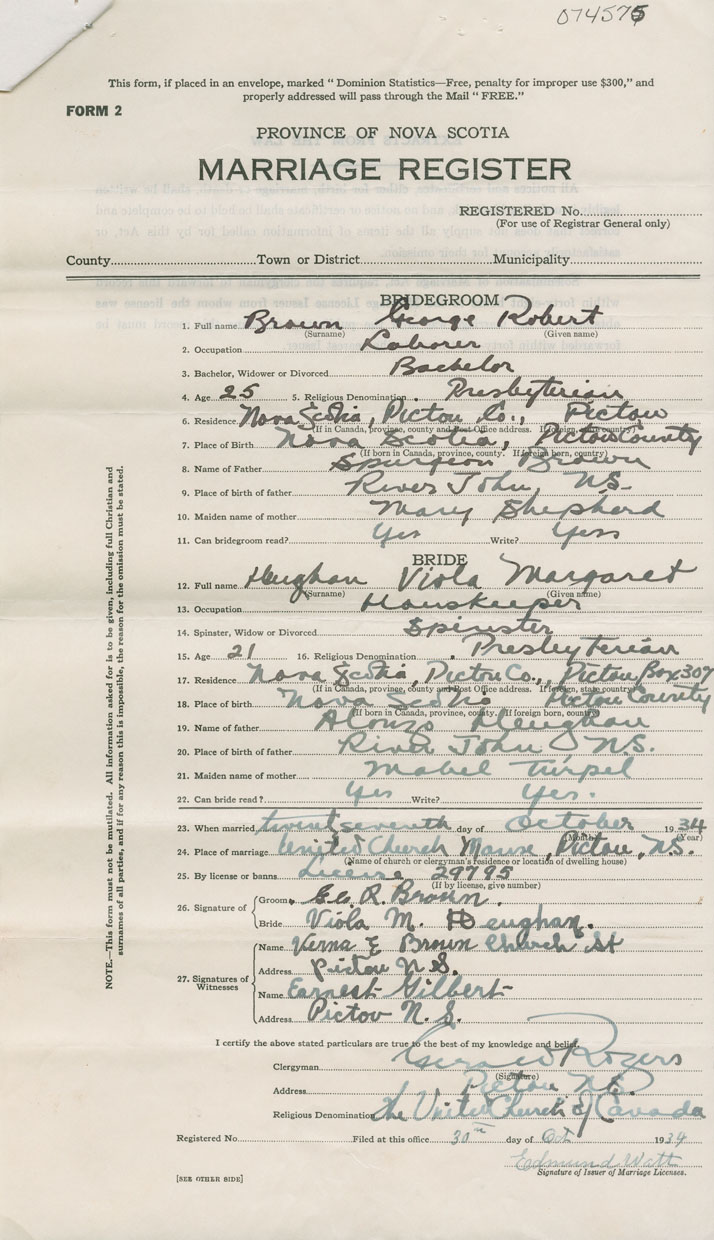 074575
This form, if placed in an envelope, marked " Dominion Statistics—Free, penalty for improper use $300," and
properly addressed will pass through the Mail " FREE."
FORM 2
PROVINCE OF NOVA SCOTIA
MARRIAGE REGISTER
REGISTERED No.
(For use of Registrar General only)
County Town or District Municipality
BRIDEGROOM
1. Full name Brown George Robert
(Surname) (Given name)
2. Occupation Laborer
3. Bachelor, Widower or Divorced Bachelor
4. Age 25 5. Religious Denomination Presbyterian
6. Residence Nova Scotia, Pictou Co., Pictou
(If in Canada, province, county and Post Office address. If foreign, state country)
7. Place of Birth Nova Scotia, Pictou County
(If born in Canada, province, county. If foreign born, country)
8. Name of Father Spurgeon Brown
9. Place of birth of father River John, N.S.
10. Maiden name of mother Mary Shepherd
11. Can bridegroom read? Yes Write? Yess
BRIDE
12. Full name Heughan Viola Margaret
(Surname) (Given name)
13. Occupation Houskeeper
14. Spinster, Widow or Divorced Spinster
15. Age 21 16. Religious Denomination Presbyterian
17. Residence Nova Scotia, Pictou Co., Pictou Box 307
(If in Canada, province, county and Post Office address. If foreign, state country)
18. Place of birth Nova Scotia Pictou County
(If born in Canada, province, county. If foreign born, country)
19. Name of father Alonzo Heughan
20. Place of birth of father River John N.S.
21. Maiden name of mother Mabel Turpel
22. Can bride read? Yes Write? Yes.
23. When married twenty seventh day of October 19 34
(Month) (Year)
24. Place of marriage United Church Manse, Pictou, N.S.
(Name of church or clergyman's residence or location of dwelling house)
25. By license or banns License 29795
(If by license, give number)
26. Signature of Groom Geo. R. Brown.
Bride Viola M. Heughan.
27. Signatures of Witnesses Name Verna E Brown Church St
Address Pictou N.S.
Name Earnest Gilbert
Address Pictov N.S.
I certify the above stated particulars are true to the best of my knowledge and belief.
Clergyman Rogers
(Signature)
Address Pictou N.S.
Religious Denomination the United Church of Canada
Registered No. Filed at this office 30th day of Oct 1934
Edmund Watt
Signature of Issuer of Marriage Licenses.
[SEE OTHER SIDE]
NOTE.—This form must not be mutilated. All information asked for is to be given, including full Christian and
surnames of all parties, and if for any reason this is impossible, the reason for the omission must be stated.